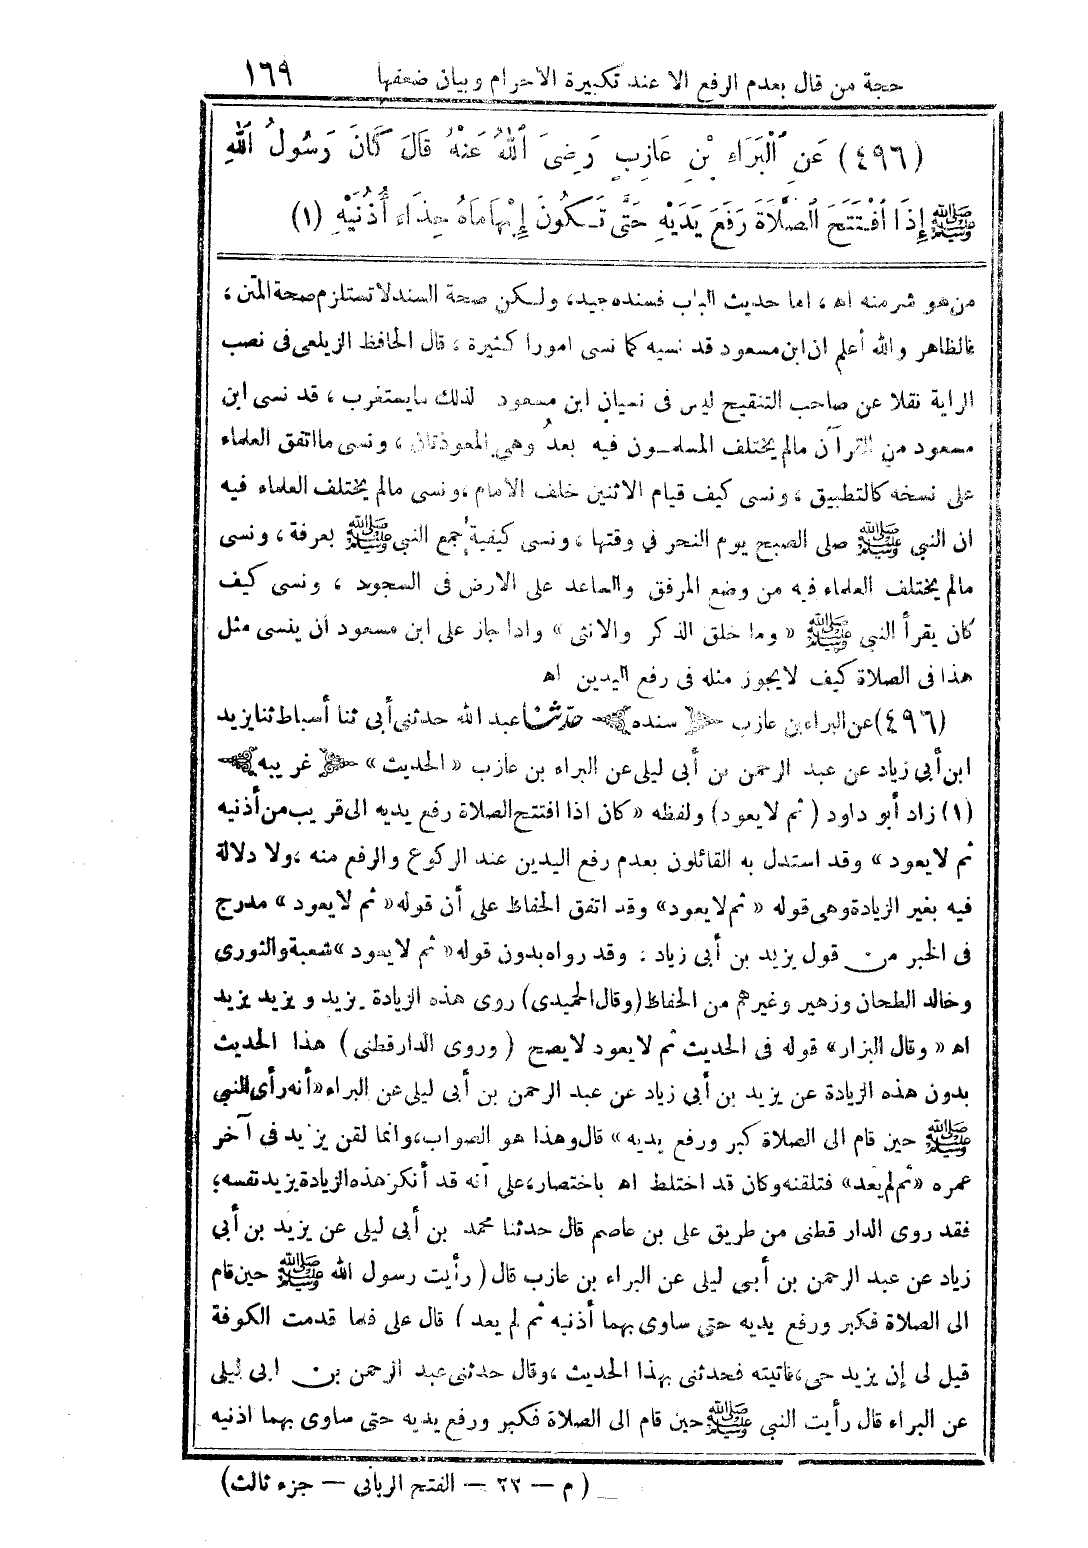 حجة من قال بعدم الرفع الا عند تكبيرة الاحرام وبيان ضعفها ١٦٩
(٤٩٦) عَنِ ٱلْبَرَاءِ بْنِ عَازِبٍ رَضِيَ ٱللهُ عَنْهُ قَالَ كَانَ رَسُولُ ٱللهِ
ﷺ إِذَا ٱفْتَتَحَ ٱلصَّلاَةَ رَفَعَ يَدَيْهِ حَتَّى تَكُونَ إِبْهَامَاهُ حِذَاءَ أُذُنَيْهِ (١)
من هو شر منه اه، اما حديث الباب فسنده جيد، ولكن صحة السند لا تستلزم صحة المتن،
فالظاهر والله أعلم ان ابن مسعود قد نسيه كما نسى امورا كثيرة، قال الحافظ الزيلعى فى نصب
الراية نقلا عن صاحب التنقيح ليس فى نسيان ابن مسعود لذلك مايستغرب، قد نسى ابن
مسعود من القرآن مالم يختلف المسلمون فيه بعدُ وهي المعوذتان، ونسى ما اتفق العلماء
على نسخه كالتطبيق، ونسى كيف قيام الاثنين خلف الامام، ونسى مالم يختلف العلماء فيه
ان النبي ﷺ صلى الصبح يوم النحر في وقتها، ونسى كيفية جمع النبي ﷺ بعرفة، ونسى
مالم يختلف العلماء فيه من وضع المرفق والساعد على الارض فى السجود، ونسى كيف
كان يقرأ النبى ﷺ «وما خلق الذكر والانثى» واذا جاز على ابن مسعود أن ينسى مثل
هذا فى الصلاة كيف لايجوز مثله فى رفع اليدين اه
(٤٩٦) عن البراء بن عازب سنده حدّثنا عبد الله حدثنى أبى ثنا أسباط ثنا يزيد
ابن أبي زياد عن عبد الرحمن بن أبى ليلى عن البراء بن عازب «الحديث» غريبه
(١) زاد أبو داود (ثم لا يعود) ولفظه «كان اذا افتتح الصلاة رفع يديه الى قريب من أذنيه
ثم لا يعود» وقد استدل به القائلون بعدم رفع اليدين عند الركوع والرفع منه، ولا دلالة
فيه بغير الزيادة وهى قوله «ثم لا يعود» وقد اتفق الحفاظ على أن قوله «ثم لا يعود» مدرج
فى الخبر من قول يزيد بن أبى زياد: وقد رواه بدون قوله «ثم لا يعود» شعبة والثورى
وخالد الطحان وزهير وغيرهم من الحفاظ (وقال الحميدى) روى هذه الزيادة يزيد ويزيد يزيد
اه «وقال البزار» قوله فى الحديث ثم لا يعود لا يصح (وروى الدارقطنى) هذا الحديث
بدون هذه الزيادة عن يزيد بن أبى زياد عن عبد الرحمن بن أبى ليلى عن البراء «أنه رأى النبى
ﷺ حين قام الى الصلاة كبر ورفع يديه» قال وهذا هو الصواب، وانما لقن يزيد فى آخر
عمره «ثم لم يعد» فتلقنه وكان قد اختلط اه باختصار، على أنه قد أنكر هذه الزيادة يزيد نفسه،
فقد روى الدار قطنى من طريق على بن عاصم قال حدثنا محمد بن أبى ليلى عن يزيد بن أبى
زياد عن عبد الرحمن بن أبى ليلى عن البراء بن عازب قال (رأيت رسول الله ﷺ حين قام
الى الصلاة فكبر ورفع يديه حتى ساوى بهما أذنيه ثم لم يعد) قال على فلما قدمت الكوفة
قيل لى إن يزيد حى، فاتيته فحدثنى بهذا الحديث، وقال حدثنى عبد الرحمن بن ابى ليلى
عن البراء قال رأيت النبى ﷺ حين قام الى الصلاة فكبر ورفع يديه حتى ساوى بهما اذنيه
(م — ٢٢ — الفتح الربانى — جزء ثالث)